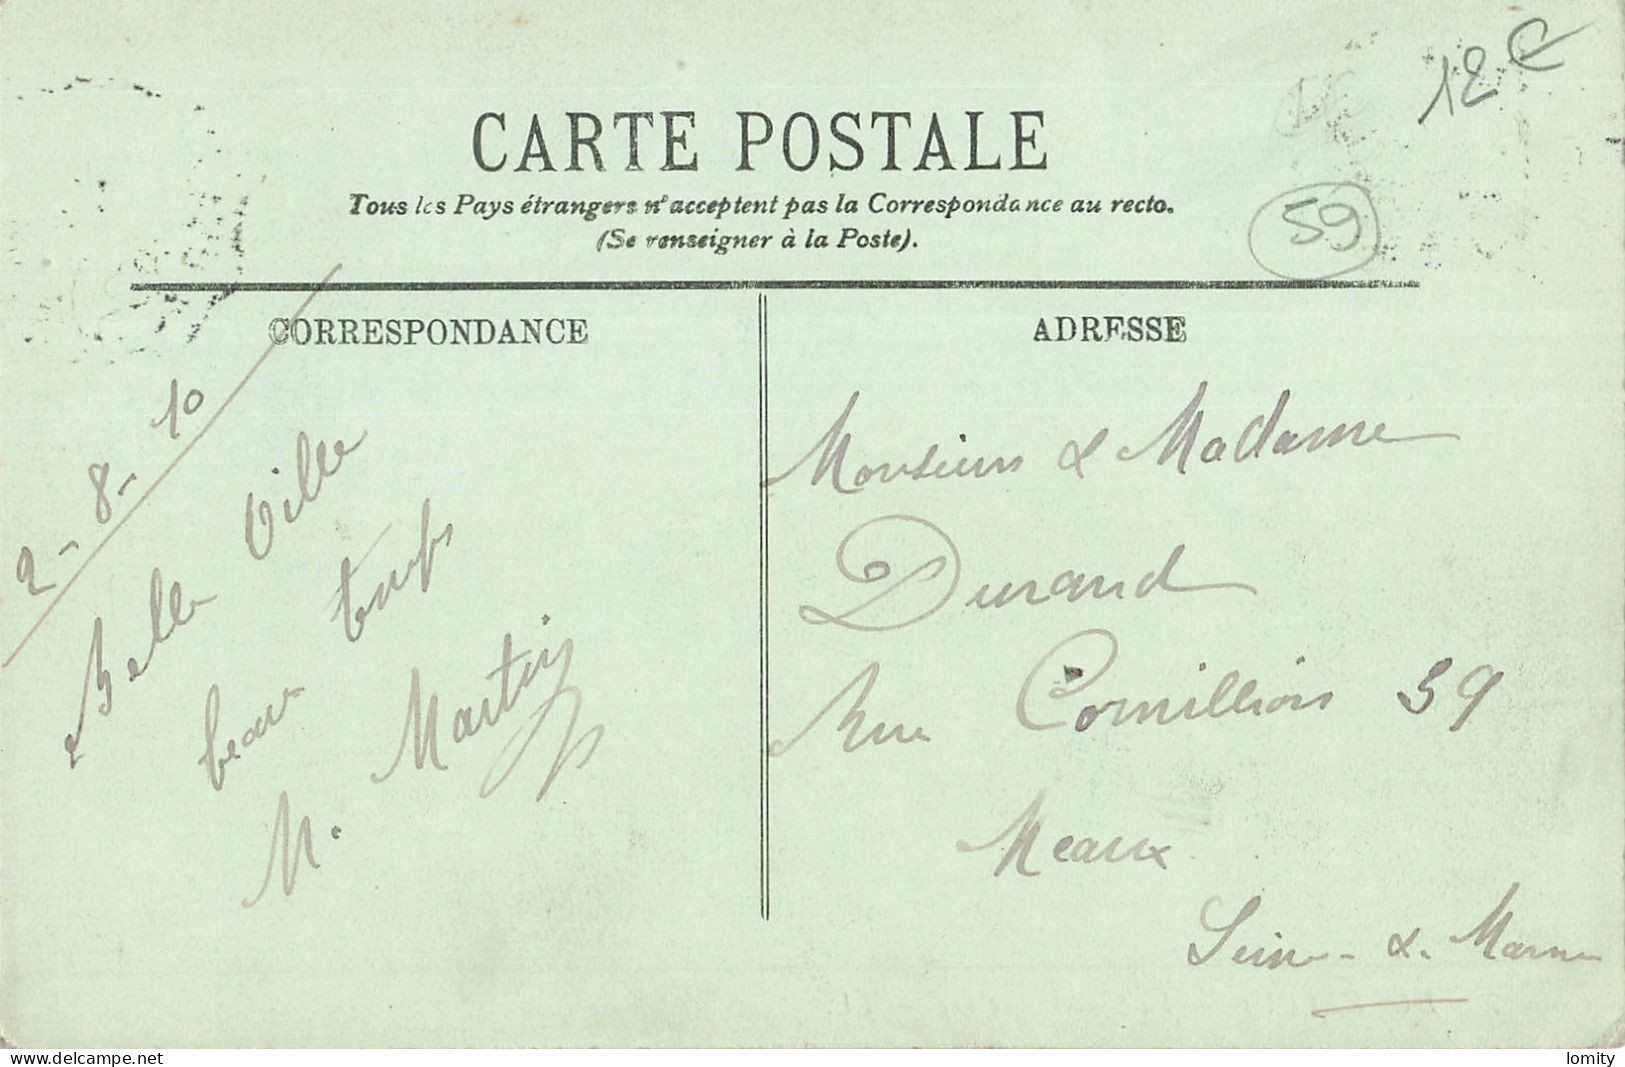 12 €
CARTE POSTALE
Tous les Pays étrangers n'acceptent pas la Correspondance au recto.
(Se renseigner à la Poste).
59
CORRESPONDANCE
2-8-10
Belle Ville
beau temps
M. Martin
ADRESSE
Monsieur & Madame
Durand
Rue Cornillion 59
Meaux
Seine-&-Marne
www.delcampe.net
lomity